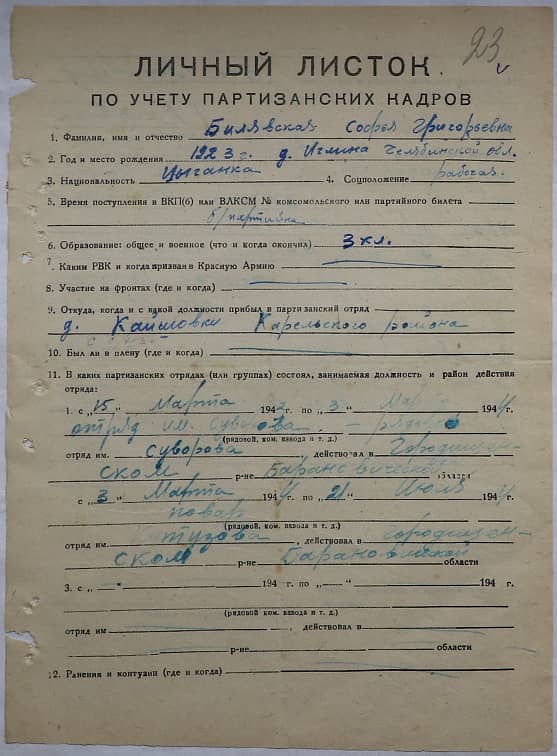 23
ЛИЧНЫЙ ЛИСТОК
ПО УЧЕТУ ПАРТИЗАНСКИХ КАДРОВ
1. Фамилия, имя и отчество Билявская Софья Григорьевна
2. Год и место рождения 1923 г. д. Иглина Челябинской обл.
3. Национальность Цыганка 4. Соцположение рабочая.
5. Время поступления в ВКП(б) или ВЛКСМ № комсомольского или партийного билета
б/партийна
6. Образование: общее и военное (что и когда окончил) 3 кл.
7. Каким РВК и когда призван в Красную Армию
8. Участие на фронтах (где и когда)
9. Откуда, когда и с какой должности прибыл в партизанский отряд
д. Кайшовки Карельского района
10. Был ли в плену (где и когда)
11. В каких партизанских отрядах (или группах) состоял, занимаемая должность и район действия
отряда:
1. с „15" Марта 194 г. по „3" Марта 1944 г.
отряд им. Суворова – рядовой
(рядовой, ком. взвода и т. д.)
отряд им. Суворова, действовал в Городищен-
ском р-не Барановичской области
с „3" Марта 1944 г. по „21" Июля 194 г.
повар
(рядовой, ком. взвода и т. д.)
отряд им. Кутузова, действовал в Городищен-
ском р-не Барановичской области
3. с „—" 194 г. по „—" 194 г.
(рядовой, ком. взвода и т. д.)
отряд им , действовал в
р-не области
12. Ранения и контузии (где и когда)